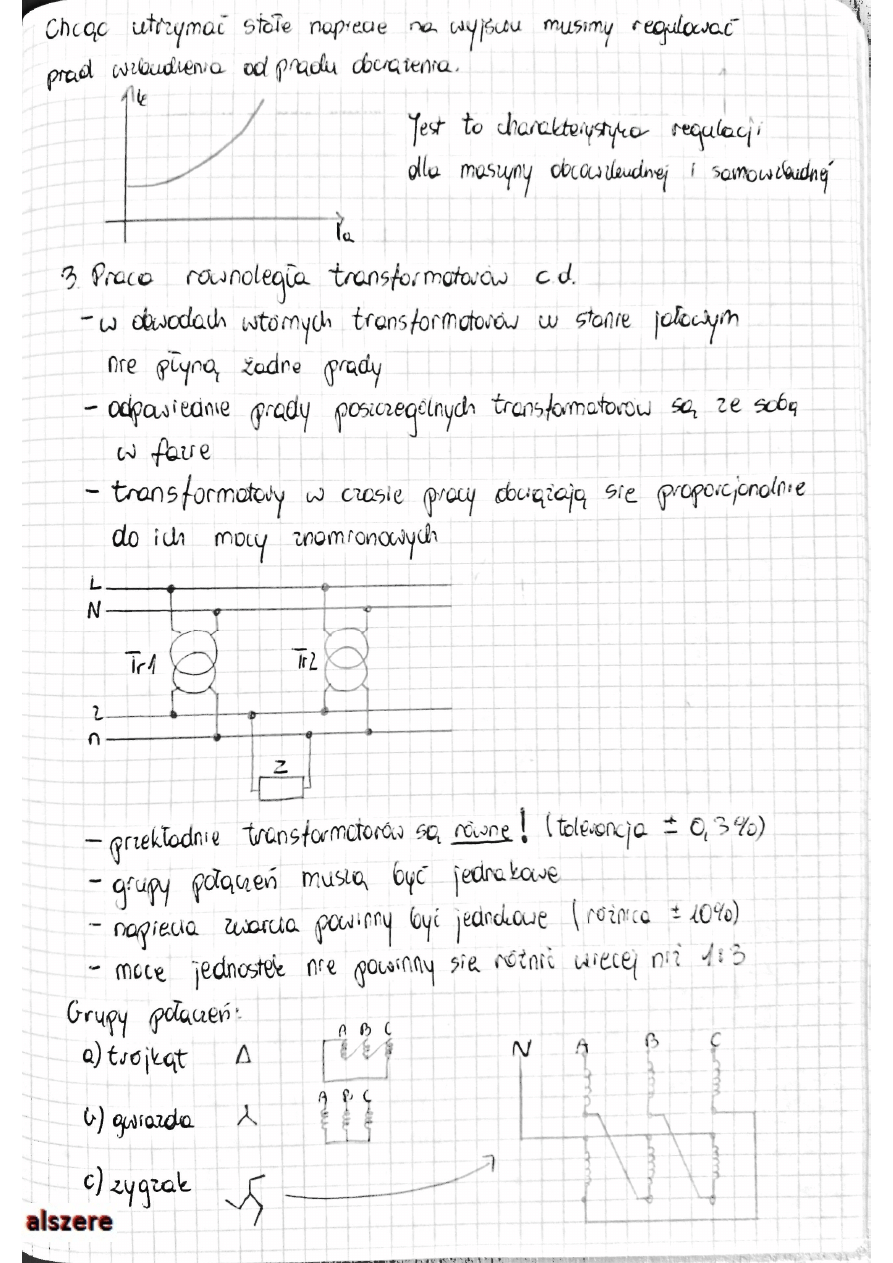 Chcąc utrzymać stałe napięcie na wyjściu musimy regulować
prąd wzbudzenia od prądu obciążenia.
Jest to charakterystyka regulacji
dla maszyny obcowzbudnej i samowzbudnej
Ia
3. Praca równoległa transformatorów c.d.
- w obwodach wtórnych transformatorów w stanie jałowym
nie płyną żadne prądy
- odpowiednie prądy poszczególnych transformatorów są ze sobą
w fazie
- transformatory w czasie pracy obciążają się proporcjonalnie
do ich mocy znamionowych
L
N
Tr1 Tr2
n
Z
- przekładnie transformatorów są równe! (tolerancja ± 0,3%)
- grupy połączeń muszą być jednakowe
- napięcia zwarcia powinny być jednakowe (różnica ± 10%)
- moce jednostek nie powinny się różnić więcej niż 1:3
Grupy połączeń:
a) trójkąt A B C
b) gwiazda A B C
c) zygzak
N A B C
alszere